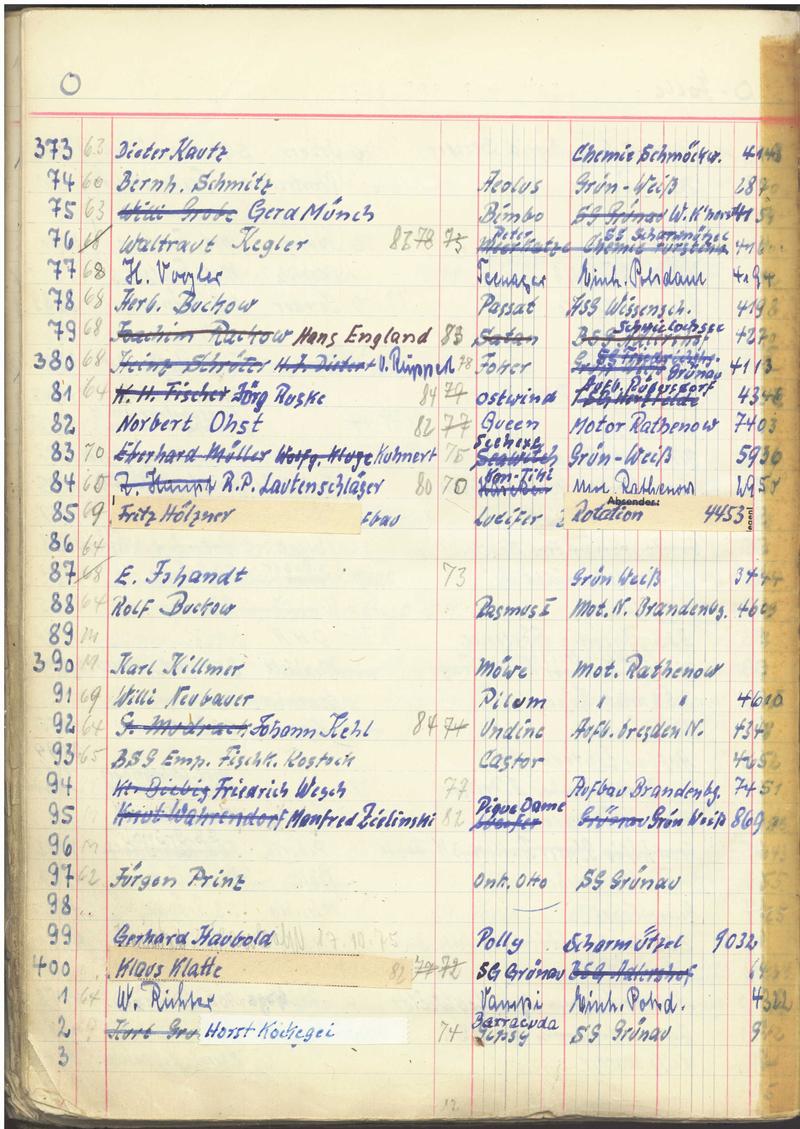 O
373 63 Dieter Kautz Chemie Schmöckw.
74 60 Bernh. Schmitz Aeolus Grün-Weiß 287
75 63 Willi Grobe Gerd Münch Bimbo SG Grünau W. K'horst
76 68 Waltraut Kegler 78 75 Peter Meerkatze SG Scharmützel Chemie
77 68 H. Vogler Teenager Einh. Potsdam
78 68 Herb. Buckow Passat HSG Wissensch. 4198
79 68 Joachim Rackow Hans England 83 Satan Schmielochsee BSG Adlershof
380 68 Heinz Schröter H. J. Dieter V. Rüppel 78 Foher Grünau 4113
81 64 K. H. Fischer Jörg Ruske 84 77 Ostwind Aufb. Rüdersdorf 434
82 Norbert Ohst 82 77 Queen Motor Rathenow 7403
83 70 Eberhard Müller Wolfg. Kluge Kuhnert 75 Seehexe Seawitch Grün-Weiß 5930
84 60 R.P. Lautenschläger 80 70 Kon-Tiki Mot. Rathenow
85 69 Fritz Hölzner fbau Lucifer Absender: Rotation 4453
86 64
87 68 E. Fshandt 73 Grün Weiß 34
88 64 Rolf Buckow Rasmus I Mot. N. Brandenbg. 46
89 M
390 M Karl Killmer Möwe Mot. Rathenow
91 69 Willi Neubauer Pilum " " 46
92 64 G. Modrach Johann Kehl 84 74 Undine Aufb. Dresden N. 434
93 65 BSG Emp. Fischk. Rostock Castor
94 Kl. Diebig Friedrich Wesch 77 Aufbau Brandenbg. 7451
95 Knut Wahrendorf Manfred Zielinski 82 Pique Dame Grünau Grün Weiß 869
96 M
97 62 Jürgen Prinz Onk. Otto SG Grünau
98
99 Gerhard Haubold Polly Scharmützel 9032
400 Klaus Klatte 82 77 72 SG Grünau BSG Adlershof
1 64 W. Richter Vampi Einh. Potsd. 4322
2 Kurt Gro Horst Kockegei 74 Barracuda Gipsy SG Grünau
3